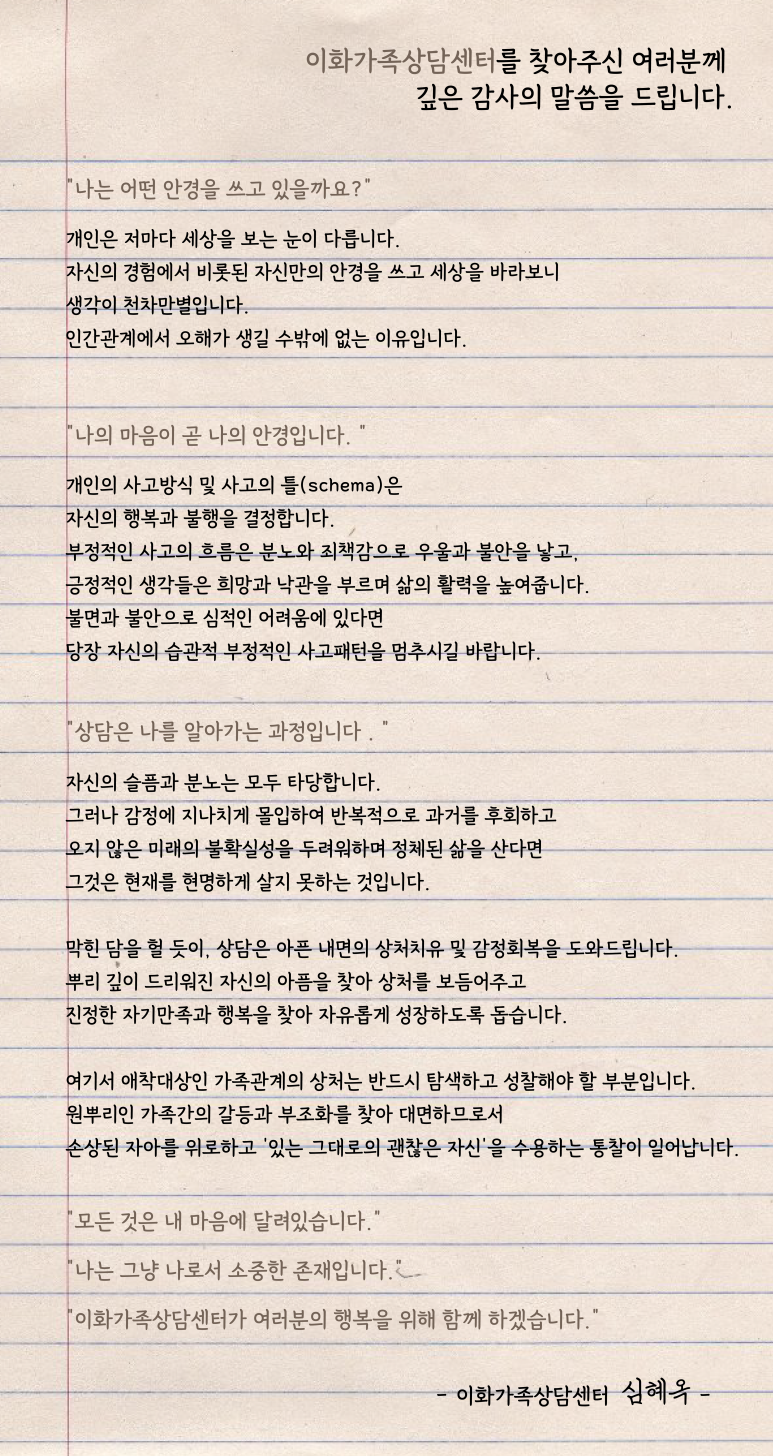 이화가족상담센터를 찾아주신 여러분께
깊은 감사의 말씀을 드립니다.
"나는 어떤 안경을 쓰고 있을까요?"
개인은 저마다 세상을 보는 눈이 다릅니다.
자신의 경험에서 비롯된 자신만의 안경을 쓰고 세상을 바라보니
생각이 천차만별입니다.
인간관계에서 오해가 생길 수밖에 없는 이유입니다.
"나의 마음이 곧 나의 안경입니다. "
개인의 사고방식 및 사고의 틀(schema)은
자신의 행복과 불행을 결정합니다.
부정적인 사고의 흐름은 분노와 죄책감으로 우울과 불안을 낳고,
긍정적인 생각들은 희망과 낙관을 부르며 삶의 활력을 높여줍니다.
불면과 불안으로 심적인 어려움에 있다면
당장 자신의 습관적 부정적인 사고패턴을 멈추시길 바랍니다.
"상담은 나를 알아가는 과정입니다 . "
자신의 슬픔과 분노는 모두 타당합니다.
그러나 감정에 지나치게 몰입하여 반복적으로 과거를 후회하고
오지 않은 미래의 불확실성을 두려워하며 정체된 삶을 산다면
그것은 현재를 현명하게 살지 못하는 것입니다.
막힌 담을 헐 듯이, 상담은 아픈 내면의 상처치유 및 감정회복을 도와드립니다.
뿌리 깊이 드리워진 자신의 아픔을 찾아 상처를 보듬어주고
진정한 자기만족과 행복을 찾아 자유롭게 성장하도록 돕습니다.
여기서 애착대상인 가족관계의 상처는 반드시 탐색하고 성찰해야 할 부분입니다.
원뿌리인 가족간의 갈등과 부조화를 찾아 대면하므로서
손상된 자아를 위로하고 '있는 그대로의 괜찮은 자신'을 수용하는 통찰이 일어납니다.
"모든 것은 내 마음에 달려있습니다."
"나는 그냥 나로서 소중한 존재입니다."
"이화가족상담센터가 여러분의 행복을 위해 함께 하겠습니다."
- 이화가족상담센터 심혜옥 -